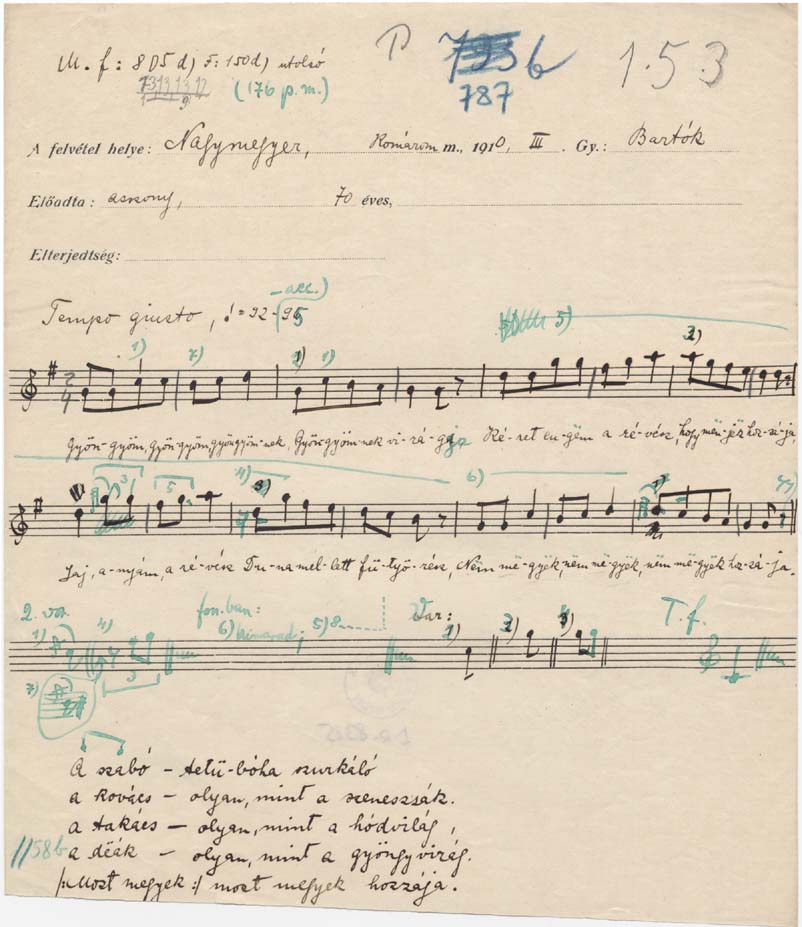 M. f: 805 d) F: 150d) utolsó
(176 p. m.)
b
787
1.5.3
A felvétel helye: Nagymegyer, Komárom m., 1910, III. Gy.: Bartók
Előadta: asszony, 70 éves,
Elterjedtség:
acc.)
Tempo giusto, ♩= 92-96
5)
1) 7) 1) 1) 2)
2
4
Gyön-gyöm, gyön-gyöm, gyöngyöm-nek, Gyön-gyöm-nek vi-rá-gja Ké-ret en-gëm a ré-vész, hogy mën-jek hoz-zá-ja,
3 5 4) 3) 6)
Jaj, a-nyám, a ré-vész Du-na mel-lett fü-työ-rész, Nëm më-gyëk, nëm më-gyëk, nëm më-gyëk hoz-zá-ja.
2. vsz. fon.ban: Var: T. f.
1) 4) 6) kimarad; 5) 8 1) 2) 3)
7) 3
A szabó - tetü-bóha szurkáló
a kovács - olyan, mint a szeneszsák.
a takács - olyan, mint a hódvilág,
//58b a dëák - olyan, mint a gyöngyvirág.
/: Most megyek :/ most megyek hozzája.